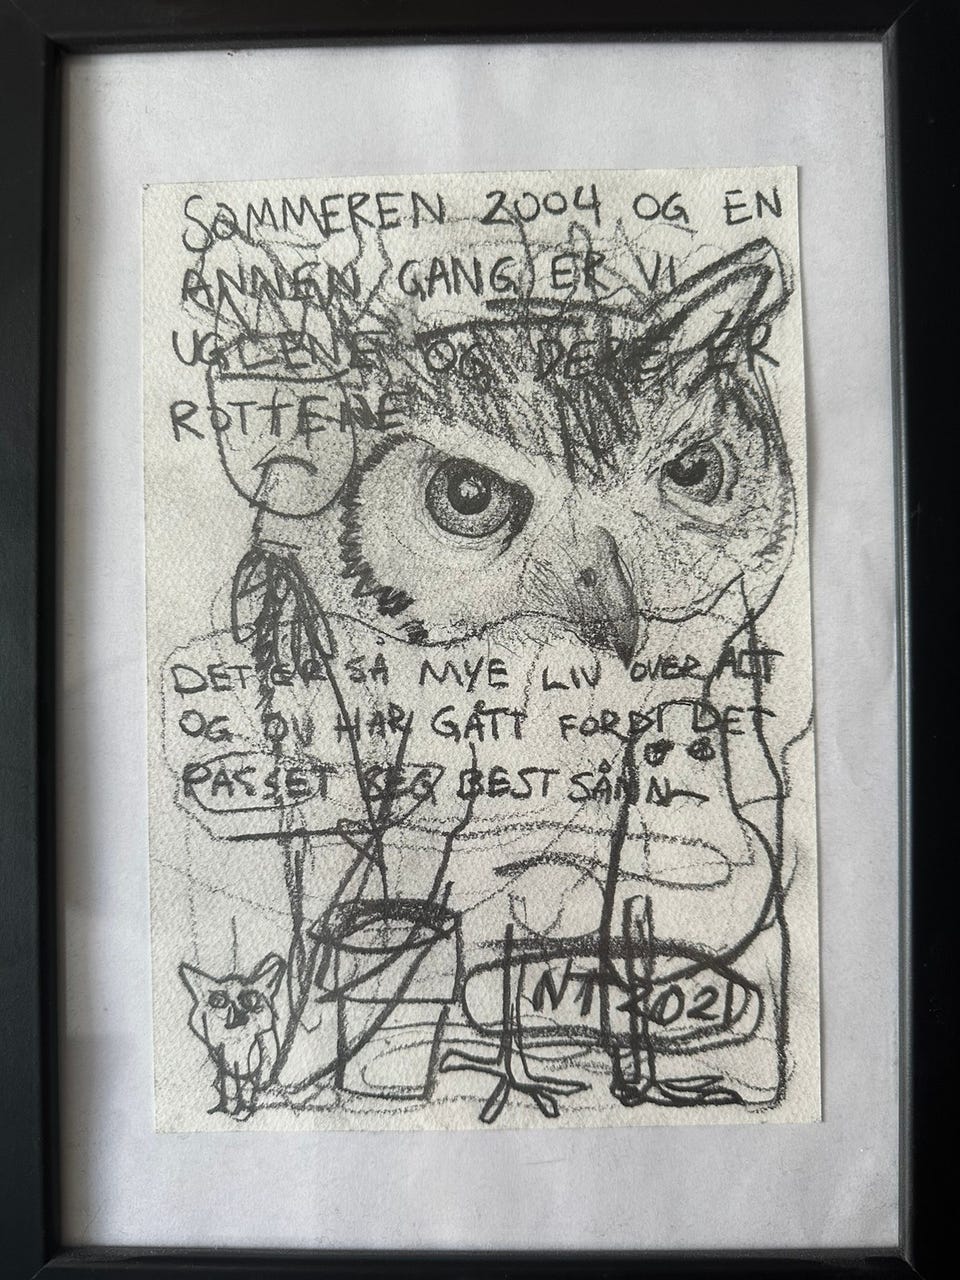 SOMMEREN 2004 OG EN
ANNEN GANG ER VI
UGLENE OG DERE ER
ROTTENE
DET ER SÅ MYE LIV OVER ALT
OG DU HAR GÅTT FORDI DET
PASSET SEG BEST SÅNN
NT 2021